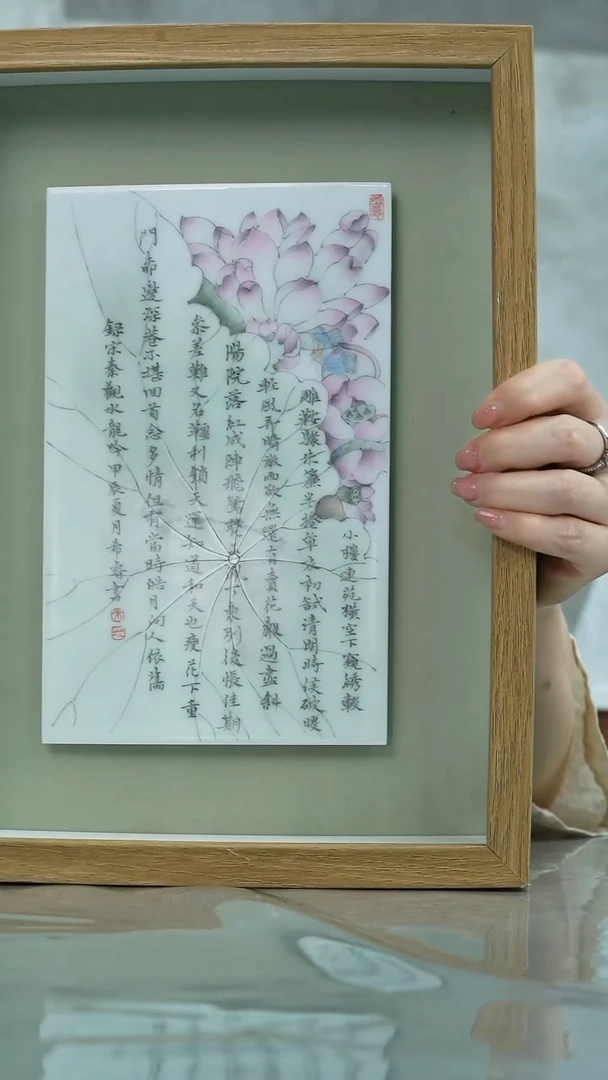 小樓連苑橫空下窺綉轂
雕鞍驟朱簾半捲單衣初試清明時候破暖
輕風弄晴微雨欲無還有賣花聲過盡斜
陽院落紅成陣飛鴛甃東別後悵佳期
參差難又名韁利鎖天還知道和天也瘦花下重
門柳邊深巷不堪回首念多情但有當時皓月向人依舊
錄宋秦觀水龍吟甲辰夏月希睿書